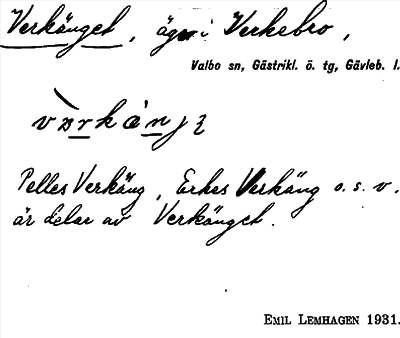 Verkänget, äger i Verkebro,
Valbo sn, Gästrikl. ö. tg, Gävleb. l.
Pelles Verkäng, Erkes Verkäng o. s. v.
är delar av Verkänget.
EMIL LEMHAGEN 1931.